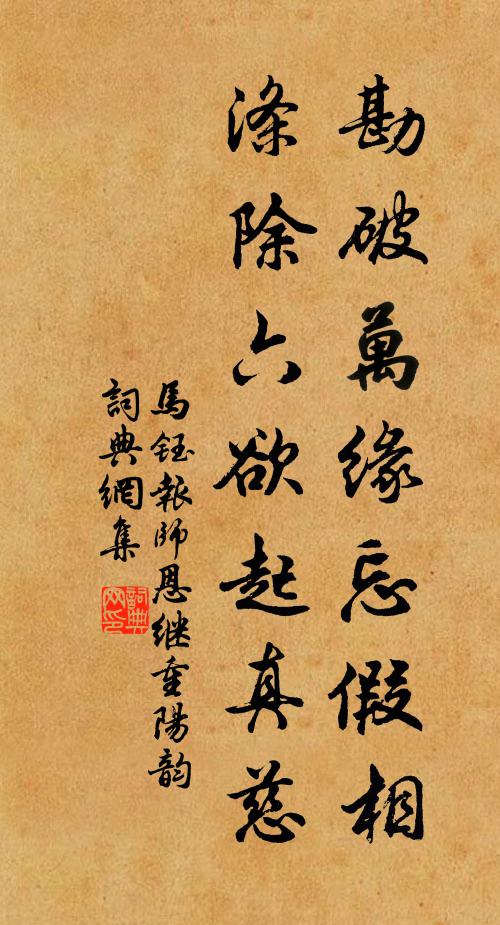 勘破萬緣忘假相
滌除六欲起真慈
馬鈺報師恩继重陽韵
詞典網集
詞典网印